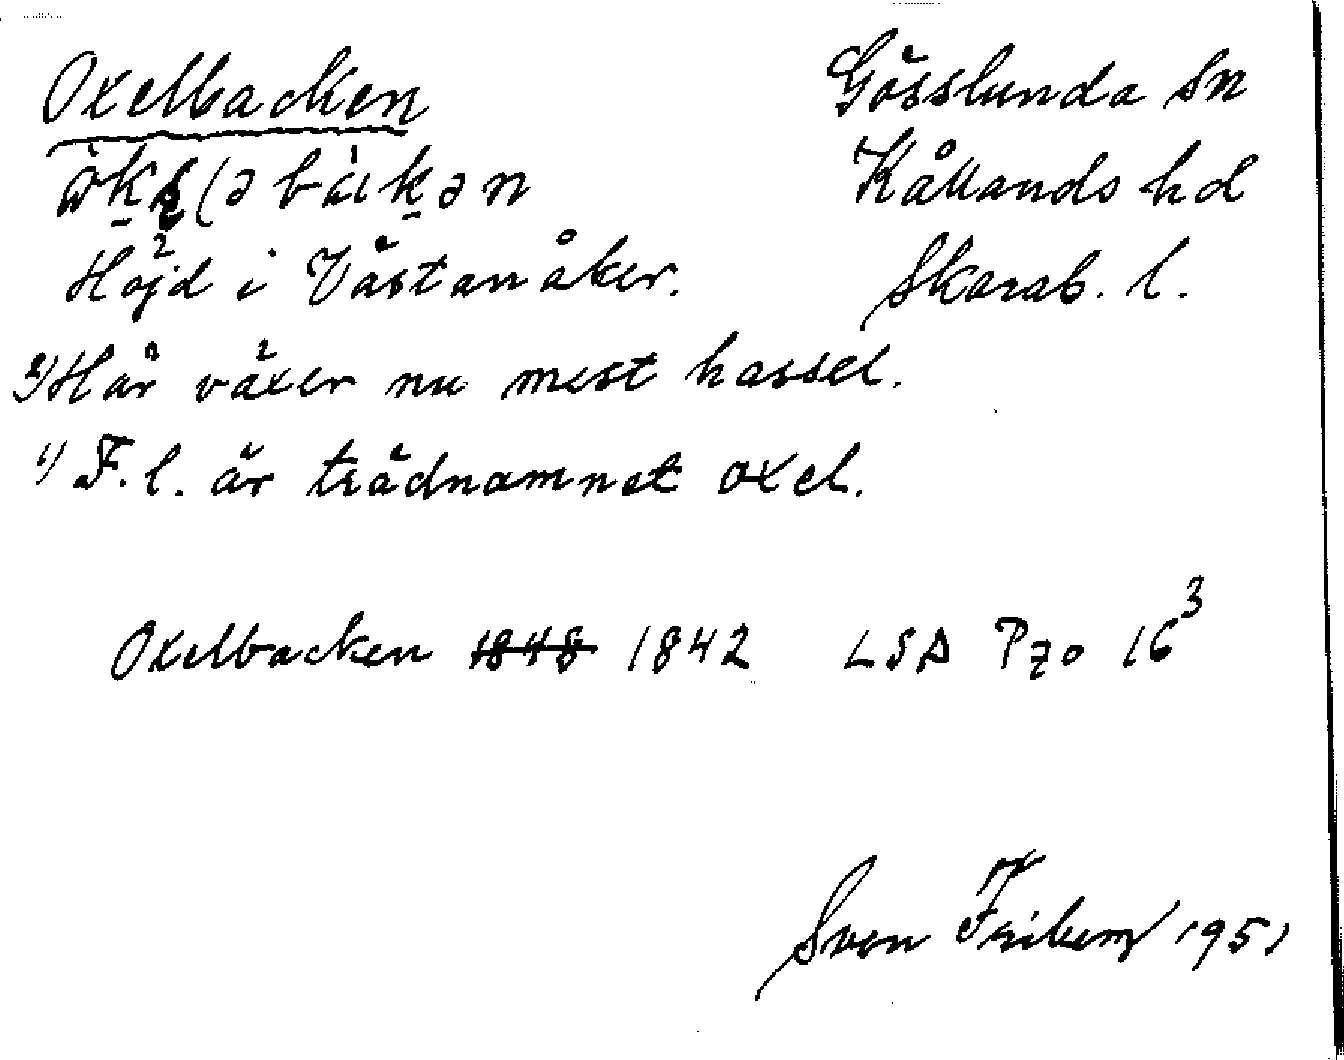 Oxelbacken
Gösslunda sn
Kållands hd
Höjd i Västanåker.
Skarab. l.
2) Här växer nu mest hassel.
1) F.l. är trädnamnet oxel.
Oxelbacken 1848 1842 LSA P70 16³
Sven Friberg 1951